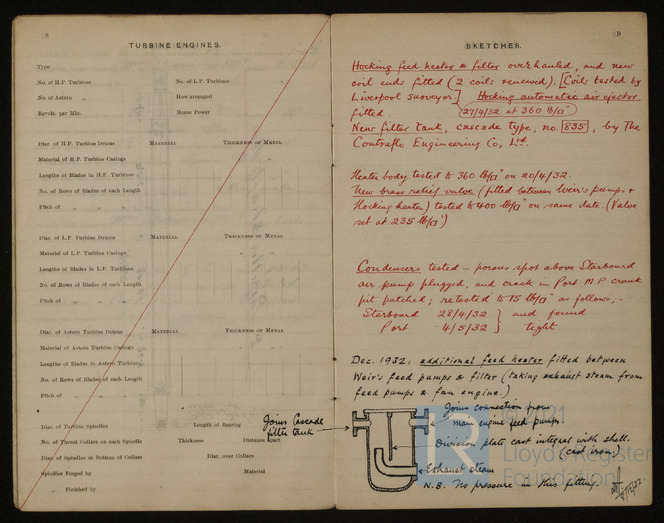 8
TURBINE ENGINES.
Type
No. of H.P. Turbines No. of L.P. Turbines
No. of Astern „ How arranged
Revols. per Min. Horse Power
Diar. of H.P. Turbine Drums MATERIAL THICKNESS OF METAL
Material of H.P. Turbine Casings „
Lengths of Blades in H.P. Turbines
No. of Rows of Blades of each Length
Pitch of „ „ „ „
Diar. of L.P. Turbine Drums MATERIAL THICKNESS OF METAL
Material of L.P. Turbine Casings „ „
Lengths of Blades in L.P. Turbines
No. of Rows of Blades of each Length
Pitch of „ „ „ „
Diar. of Astern Turbine Drums MATERIAL THICKNESS OF METAL
Material of Astern Turbine Casings „ „
Lengths of Blades in Astern Turbines
No. of Rows of Blades of each Length
Pitch of „ „ „ „
Diar. of Turbine Spindles Length of Bearing
No. of Thrust Collars on each Spindle Thickness Distance apart
Diar. of Spindles at Bottom of Collars Diar. over Collars
Spindles Forged by Material
„ Finished by
Joins Cascade
filter tank
9
SKETCHES.
Hocking feed heater & filter overhauled, and new
coil ends fitted (2 coils renewed). [Coils tested by
Liverpool Surveyor] Hocking automatic air ejector
fitted. (27/4/32 at 360 lb/□")
New filter tank, cascade type, no. 835, by The
Contraflo Engineering Co, Ltd.
Heater body tested to 360 lb/□" on 20/4/32.
New brass relief valve (fitted between Weir's pumps &
Hocking heater) tested to 400 lb/□" on same date. (Valve
set at 235 lb/□")
Condensers tested – porous spot above Starboard
air pump plugged, and crack in Port M.P. crank
pit patched; retested to 15 lb/□" as follows, –
Starboard 28/4/32 } and found
Port - 4/5/32 } tight
Dec. 1932: additional feed heater fitted between
Weir's feed pumps & filter (taking exhaust steam from
feed pumps & fan engine.)
Joins connection from
main engine feed pumps.
Division plate cast integral with shell.
(cast iron)
Exhaust steam
N.B. No pressure in this fitting.
5/12/32.
Lloyd's Register
Foundation